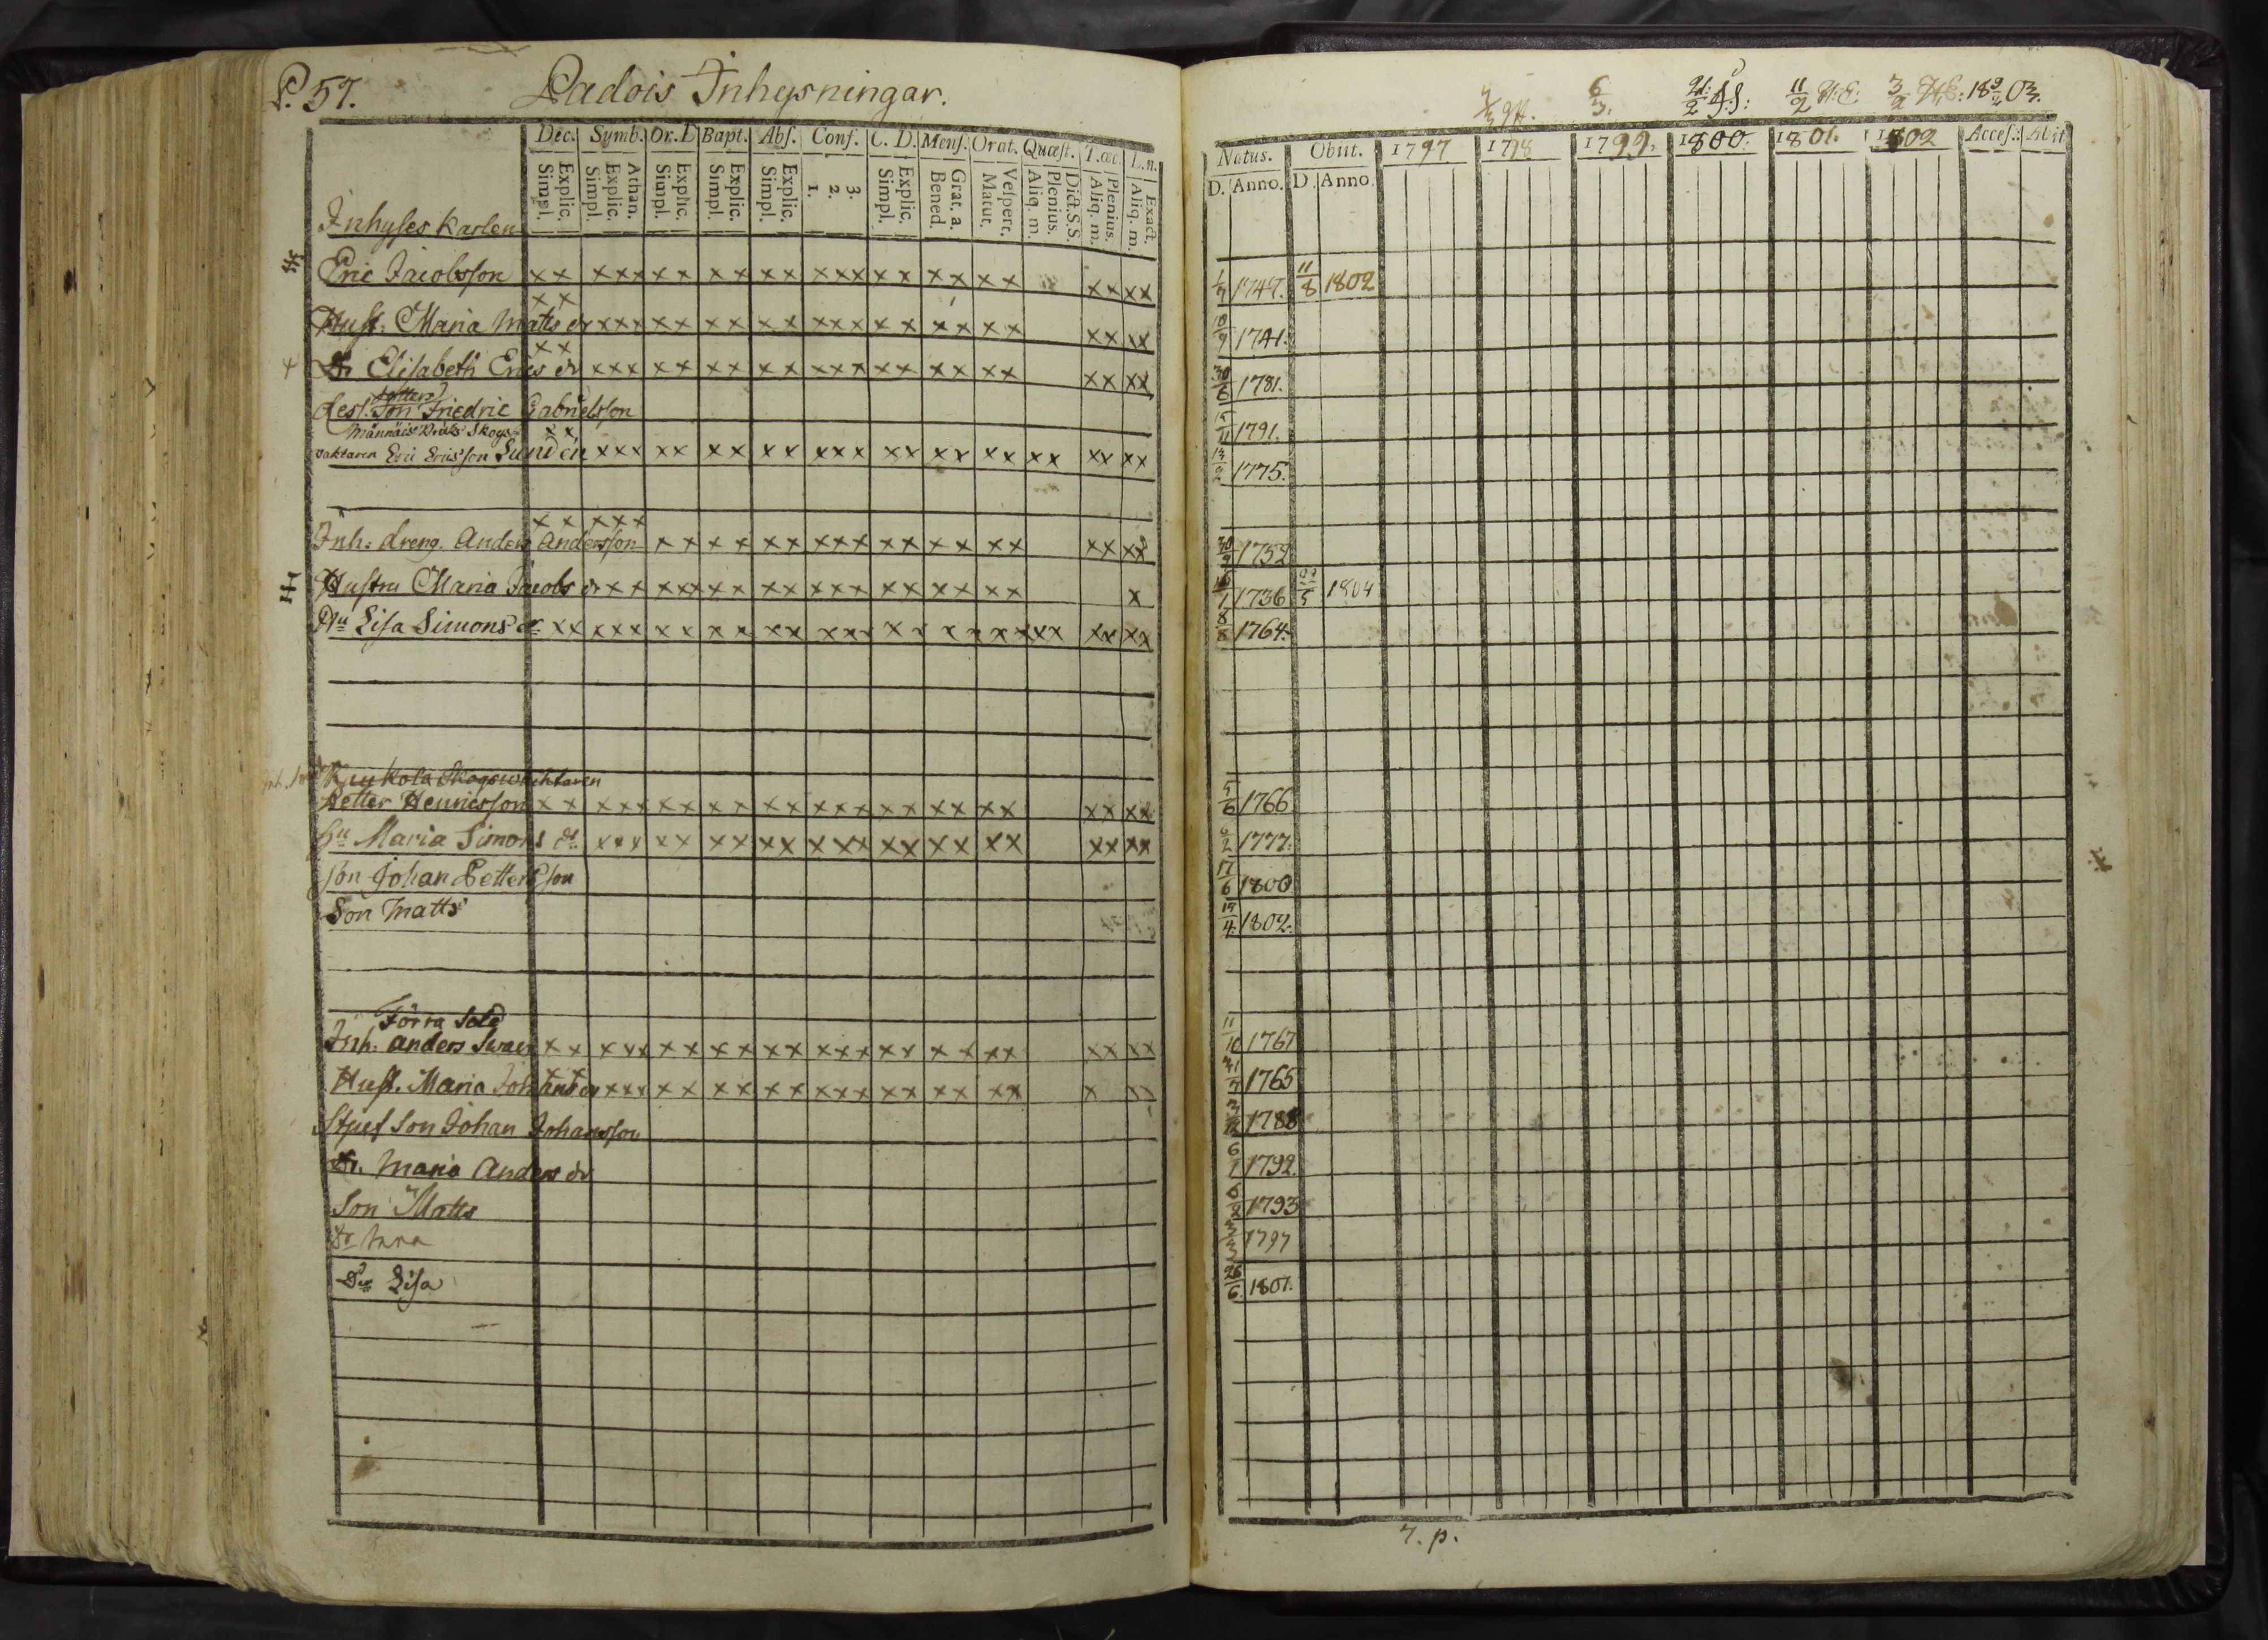 P. 57. Padois Inhysningar.
Dec. Symb. Or. D Bapt. Abs. Conf. C. D. Mens. Orat. Quæst. T. œc. L. n.
Explic. Simpl. Athan. Explic. Simpl. Explic. Simpl. Explic. Simpl. Explic. Simpl. 3. 2. 1. Explic. Simpl. Grat. a. Bened. Vespert. Matut. Dict. S. S. Plenius. Aliq. m. Plenius. Aliq. m. Exact. Aliq. m.
Inhyses Karlen
Eric Jacobsson xx xxx xx xx xx xxx xx xx xx xx xx
Hust. Maria Matts dr xx xxx xx xx xx xxx xx xx xx xx xx
Dr Elisabeth Erics dr xx xxx xx xx xx xxx xx xx xx xx xx
dess. Son Friedric Gabrielsson
Männäis Skogs
vaktaren Eric Ericsson Sundén xx xxx xx xx xx xxx xx xx xx xx xx xx
Inh: dreng. Anders Andersson xx xxx xx xx xx xxx xx xx xx xx xx
Hustru Maria Jacobs dr xx xxx xx xx xxx xx xx xx x
Hu Lisa Simons dr xx xxx xx xx xx xxx xx xx xx xx xx xx
Kuukola Skogswachtaren
Petter Henricsson xx xxx xx xx xx xxx xx xx xx xx xx
Hu Maria Simons dr xxx xx xx xx xxx xx xx xx xx xx
Son Johan Pettersson
Son Matts
Förra Sold
Inh: anders xx xxx xx xx xx xxx xx xx xx xx xx
Hust. Maria Johans dr xx xxx xx xx xx xxx xx xx xx x xx
Styuf Son Johan Johansson
Dr. Maria Anders dr
Son Matts
Dr Anna
Dr Lisa
6/3. 11/2 3/2
Natus. Obiit. 1797 1798 1799. 1800. 1801. 1802 Acces. Abit
D. Anno. D. Anno.
1747. 11/8 1802
1741.
30/6 1781.
1791.
13/2 1775.
1752
1736 1804
8/8 1764.
5/6 1766
1777.
17/6 1800
1802.
11/10 1767
1765
1788
6/1 1792.
1793
1797
26/6 1801.
r. p.